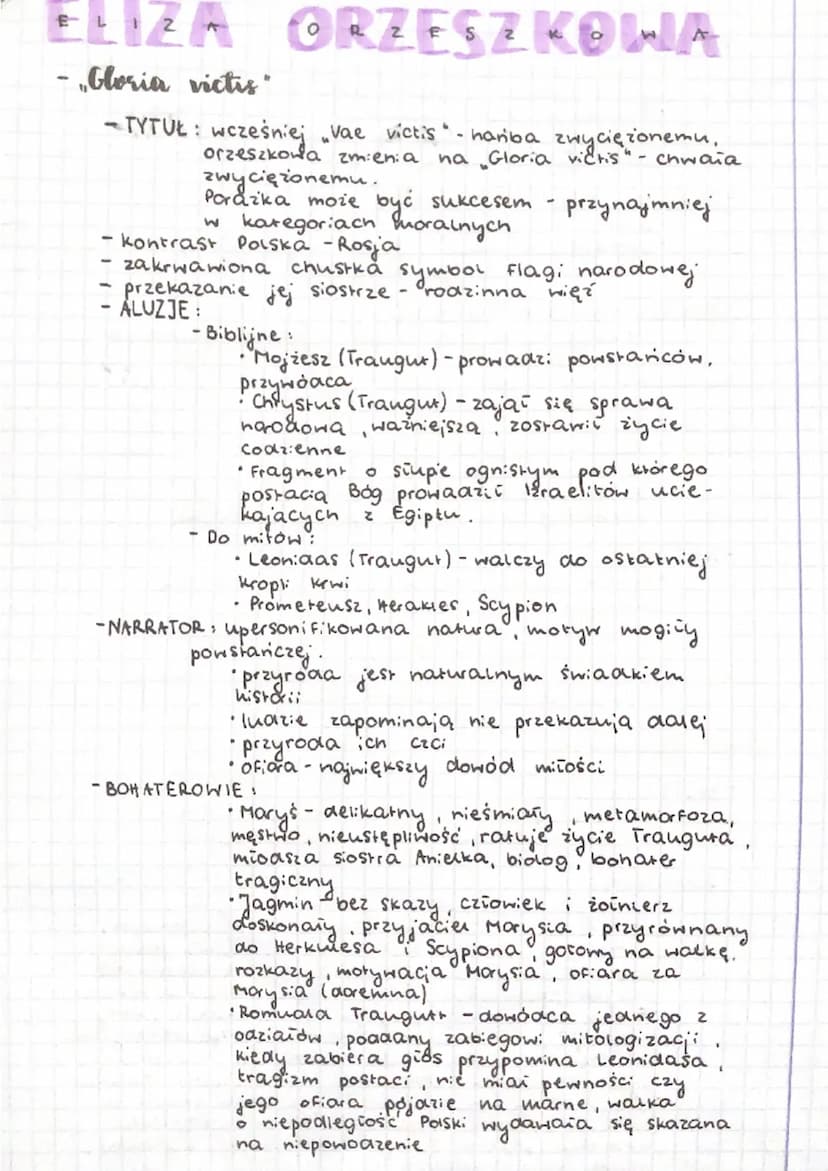 ELIZA ORZESZKOWA
- „Gloria victis"
- TYTUŁ: wcześniej „Vae victis" - hańba zwyciężonemu,
orzeszkowa zmienia na „Gloria victis" - chwała
zwyciężonemu.
Porażka może być sukcesem - przynajmniej
w kategoriach moralnych
- kontrast Polska - Rosja
- zakrwawiona chustka symbol flagi narodowej
- przekazanie jej siostrze - rodzinna więź
- ALUZJE:
- Biblijne:
• Mojżesz (Traugut) - prowadzi powstańców,
przywódca
• Chrystus (Traugut) - zajął się sprawą
narodową, ważniejszą, zostawił życie
codzienne
• Fragment o słupie ognistym pod którego
postacią Bóg prowadził Izraelitów ucie-
kających z Egiptu.
- Do mitów:
• Leonidas (Traugut) - walczy do ostatniej
kropli krwi
• Prometeusz, Herakles, Scypion
- NARRATOR: upersonifikowana natura, motyw mogiły
powstańczej.
• przyroda jest naturalnym świadkiem
historii
• ludzie zapominają nie przekazują dalej
• przyroda ich czci
• ofiara - największy dowód miłości
- BOHATEROWIE:
• Maryś - delikatny, nieśmiały, metamorfoza,
męstwo, nieustępliwość, ratuje życie Trauguta,
młodsza siostra Anielka, biolog, bohater
tragiczny
• Jagmin - bez skazy, człowiek i żołnierz
doskonały, przyjaciel Marysia, przyrównany
do Herkulesa i Scypiona, gotowy na walkę,
rozkazy, motywacja Marysia, ofiara za
Marysia (daremna)
• Romuald Traugutt - dowódca jednego z
odziałów, poddany zabiegowi mitologizacji,
kiedy zabiera głos przypomina Leonidasa,
tragizm postaci, nie miał pewności czy
jego ofiara pójdzie na marne, walka
o niepodległość Polski wydawała się skazana
na niepowodzenie